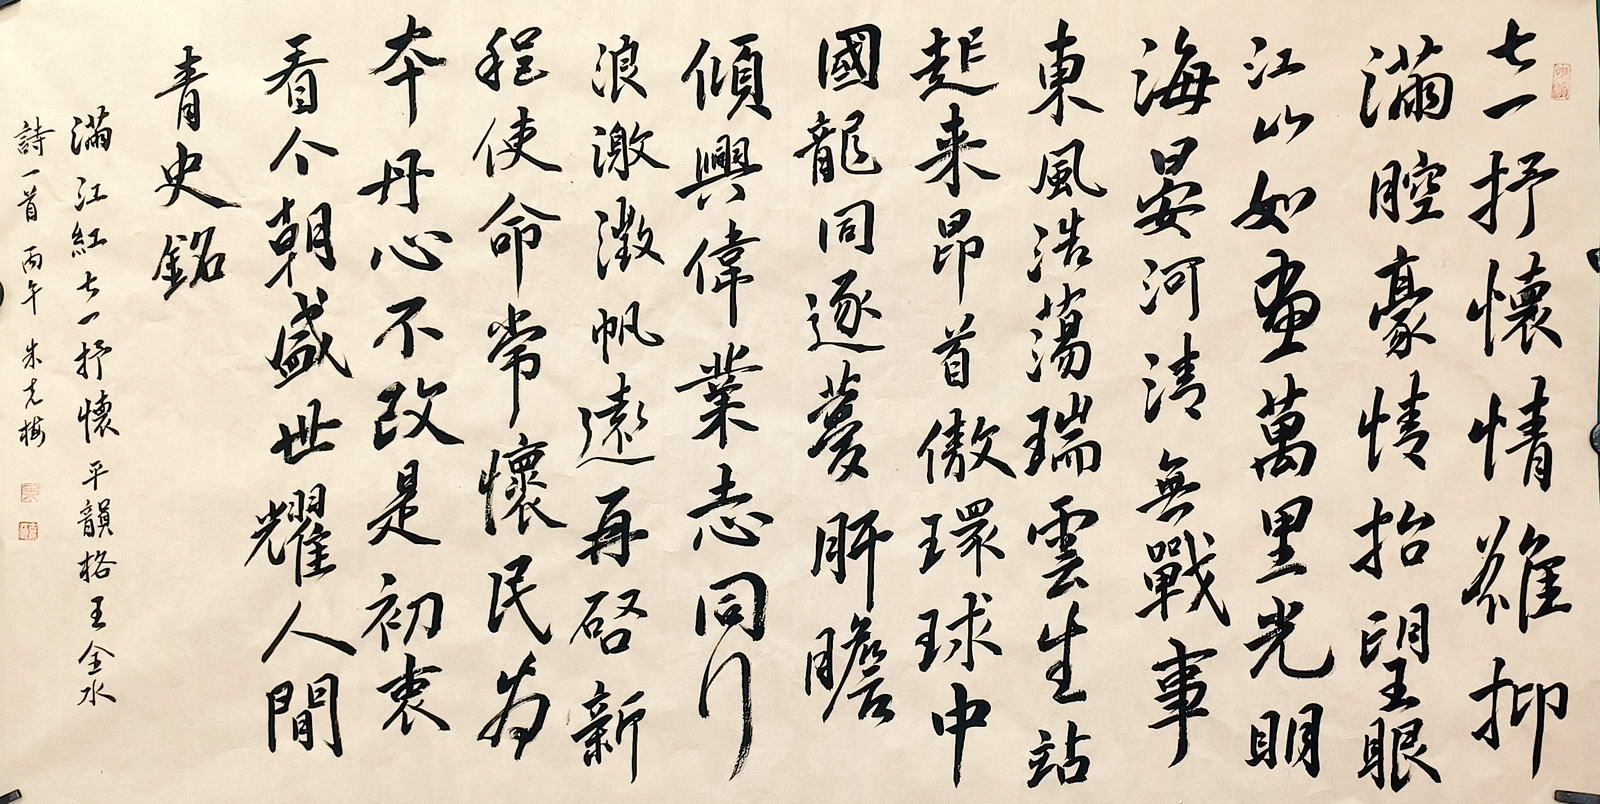 七一抒懷情難抑
滿腔豪情抬望眼
江山如畫萬里光明
海晏河清無戰事
東風浩蕩瑞雲生站
起来昂首傲環球中
國龍同逐夢肝膽
傾興偉業志同行
浪激帆遠再啓新
程使命常懷民為
本丹心不改是初衷
看今朝盛世耀人間
青史銘
滿江紅七一抒懷 平韻格王全水
詩一首 丙午 朱克梅